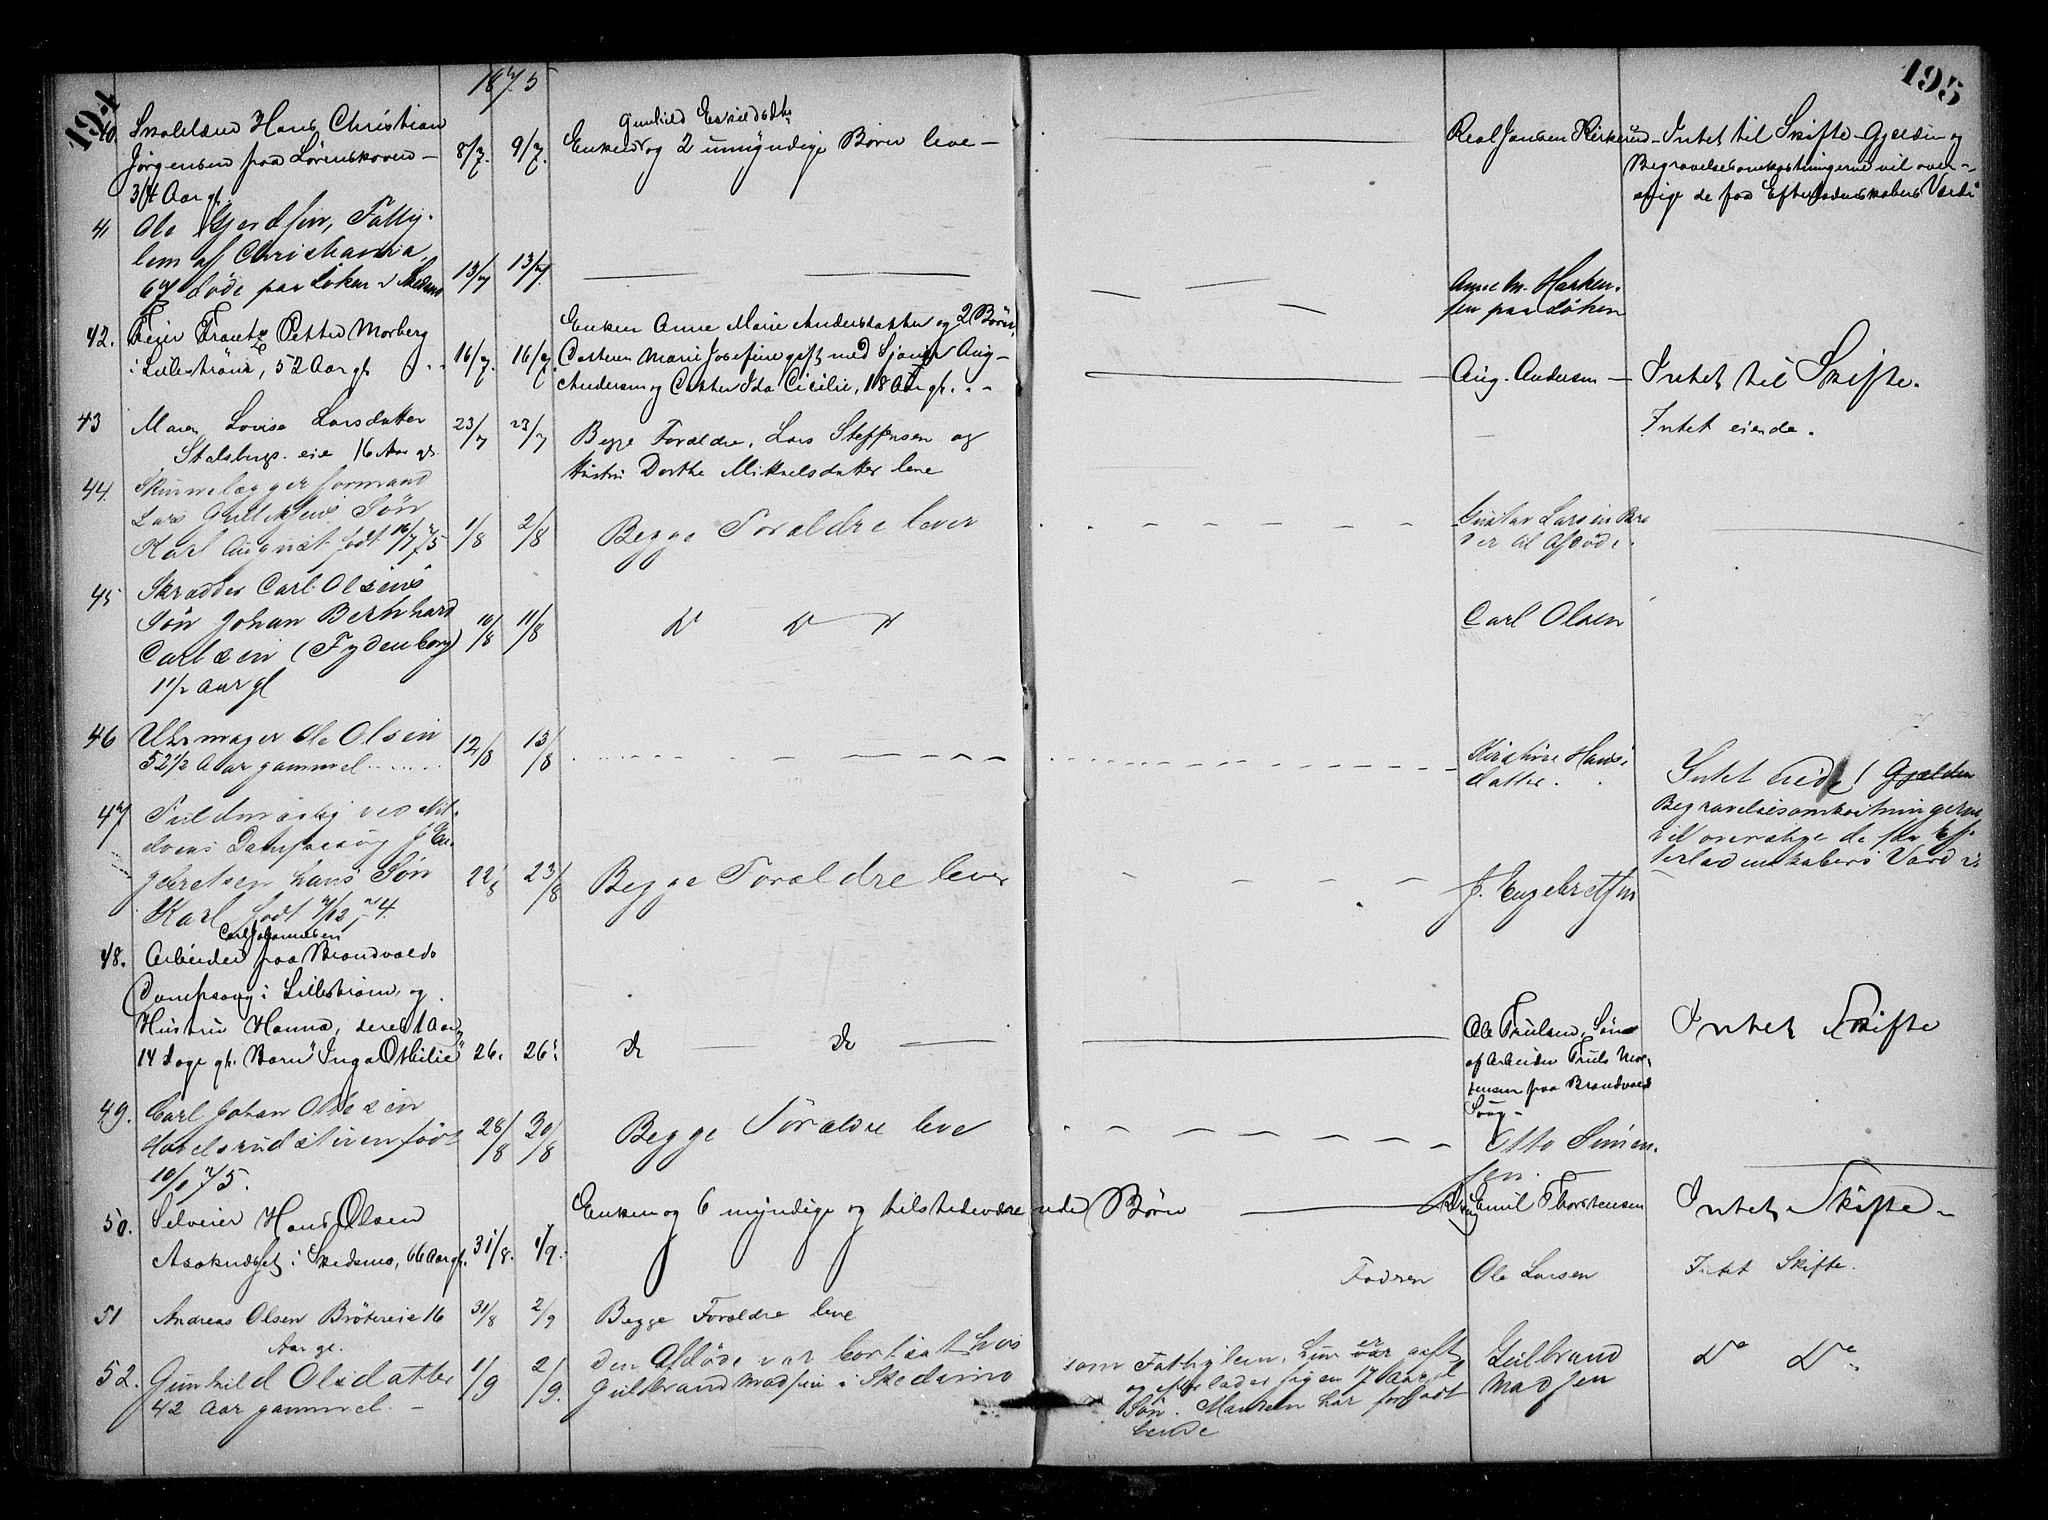 194
195
1875
40. Hans Christian
Jørgensen paa Lørenskoven
34 Aar gl.
8/7. 9/7.
Gunhild
Enken og 2 umyndige Børn leve
Jansen
Intet til Skifte. Gjælden og
Begravelsesomkostningerne vil over-
stige de faa Efterladenskabers Værdi
41 Ole Gjerdsen, Fattig-
lem af Christiania,
67 døde paa Løken i Skedsmo
13/7 13/7.
Anne M. Haaken-
sen paa Løken
42. Petter Morberg
i Lillestrøm, 52 Aar gl.
16/7. 16/7.
Enken Anne Marie Andersdatter og 2 Børn,
Datteren Marie Josefine gift med Aug.
Andersen og Datter Ida Cicilie, 18 Aar gl.
Aug. Andersen
Intet til Skifte.
43 Maren Lovise Larsdatter
Stalsbergs eie 16 Aar gl.
23/7 23/7
Begge Forældre, Lars Steffensen og
Hustru Dorthe Mikkelsdatter leve
Intet eiende.
44. Skinnelægger formand
Lars Søn
Karl August født 16/7 75
1/8 2/8
Begge Forældre lever
Gustav Larsen Bro
der til Afdøde.
45 Skrædder Carl Olsens
Søn Johan Bernhard
Carlsen (Frydenborg)
1 1/2 Aar gl
10/8 11/8
Carl Olsen
46 Uhrmager Ole Olsen
52 1/2 Aar gammel
12/8 13/8
Kirstine Hans-
datter.
Intet Gjælden
Begravelsesomkostningerne
vil overstige de faa Ef-
terladenskabers Værdi
47 Fuldmægtig ved Nit-
elvens Dampsaug J. En-
gebretsen hans Søn
Karl født /12 74.
22/8 23/8
Begge Forældre lever
J. Engebretsen
48. Arbeider Carl Johannesen paa Brandvolds
Dampsaug i Lillestrøm, og
Hustru Hanna, deres 1 Aar
14 Dage gl. Barn "Inga Othilie"
26. 26.
do do
Ole Trulsen, Søn
af Arbeider Truls Mor-
tensen paa Brandvold
Saug.
Intet Skifte
49. Carl Johan Ottesen
født
10/1 75.
28/8 30/8
Begge Forældre leve
Otto Simen-
sen.
50. Selveier Hans Olsen
Asaknedset i Skedsmo, 66 Aar gl.
31/8. 1/9.
Enken og 6 myndige og tilstedeværende Børn
Emil Thorstensen
Intet Skifte.
51 Andreas Olsen Brøtereie 16
Aar gl.
31/8 2/9
Begge Forældre leve
Fadren Ole Larsen
Intet Skifte.
52. Gunhild Olsdatter
42 Aar gammel.
1/9 2/9.
Den Afdøde var bortsat hos
Gulbrand Madsen i Skedsmo
som Fattiglem, hun er gift
og efterlader sig en 17 Aar gl
Søn. Manden har forladt
hende
Gulbrand
Madsen
Do Do